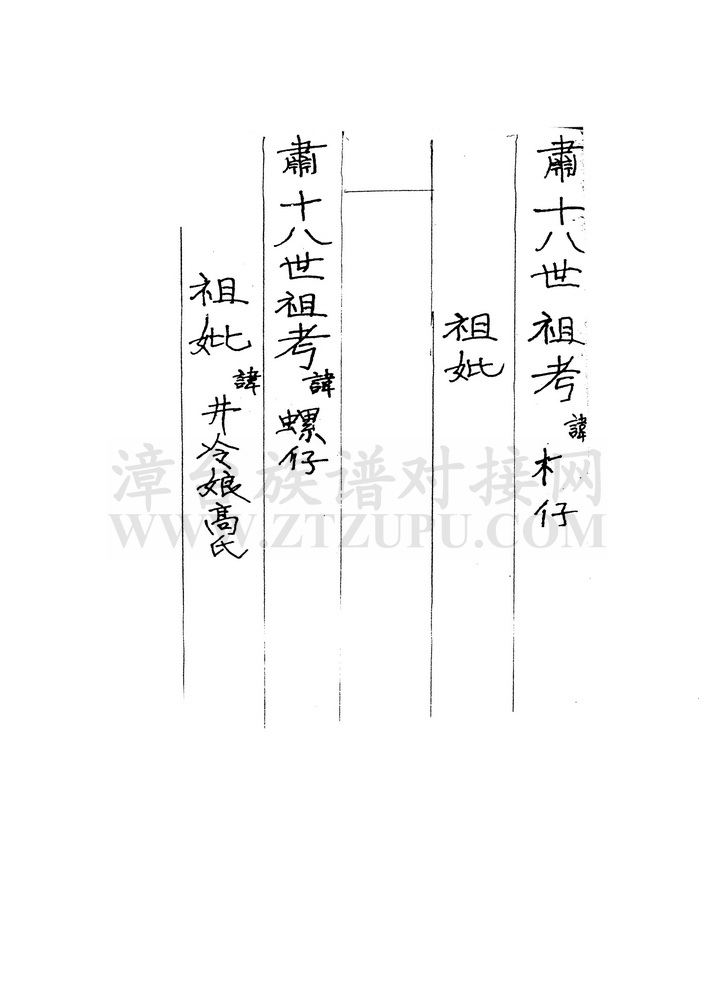 肅十八世祖考諱木仔
祖妣
肅十八世祖考諱螺仔
祖妣諱井冷娘高氏
漳台族谱对接网
WWW.ZTZUPU.COM